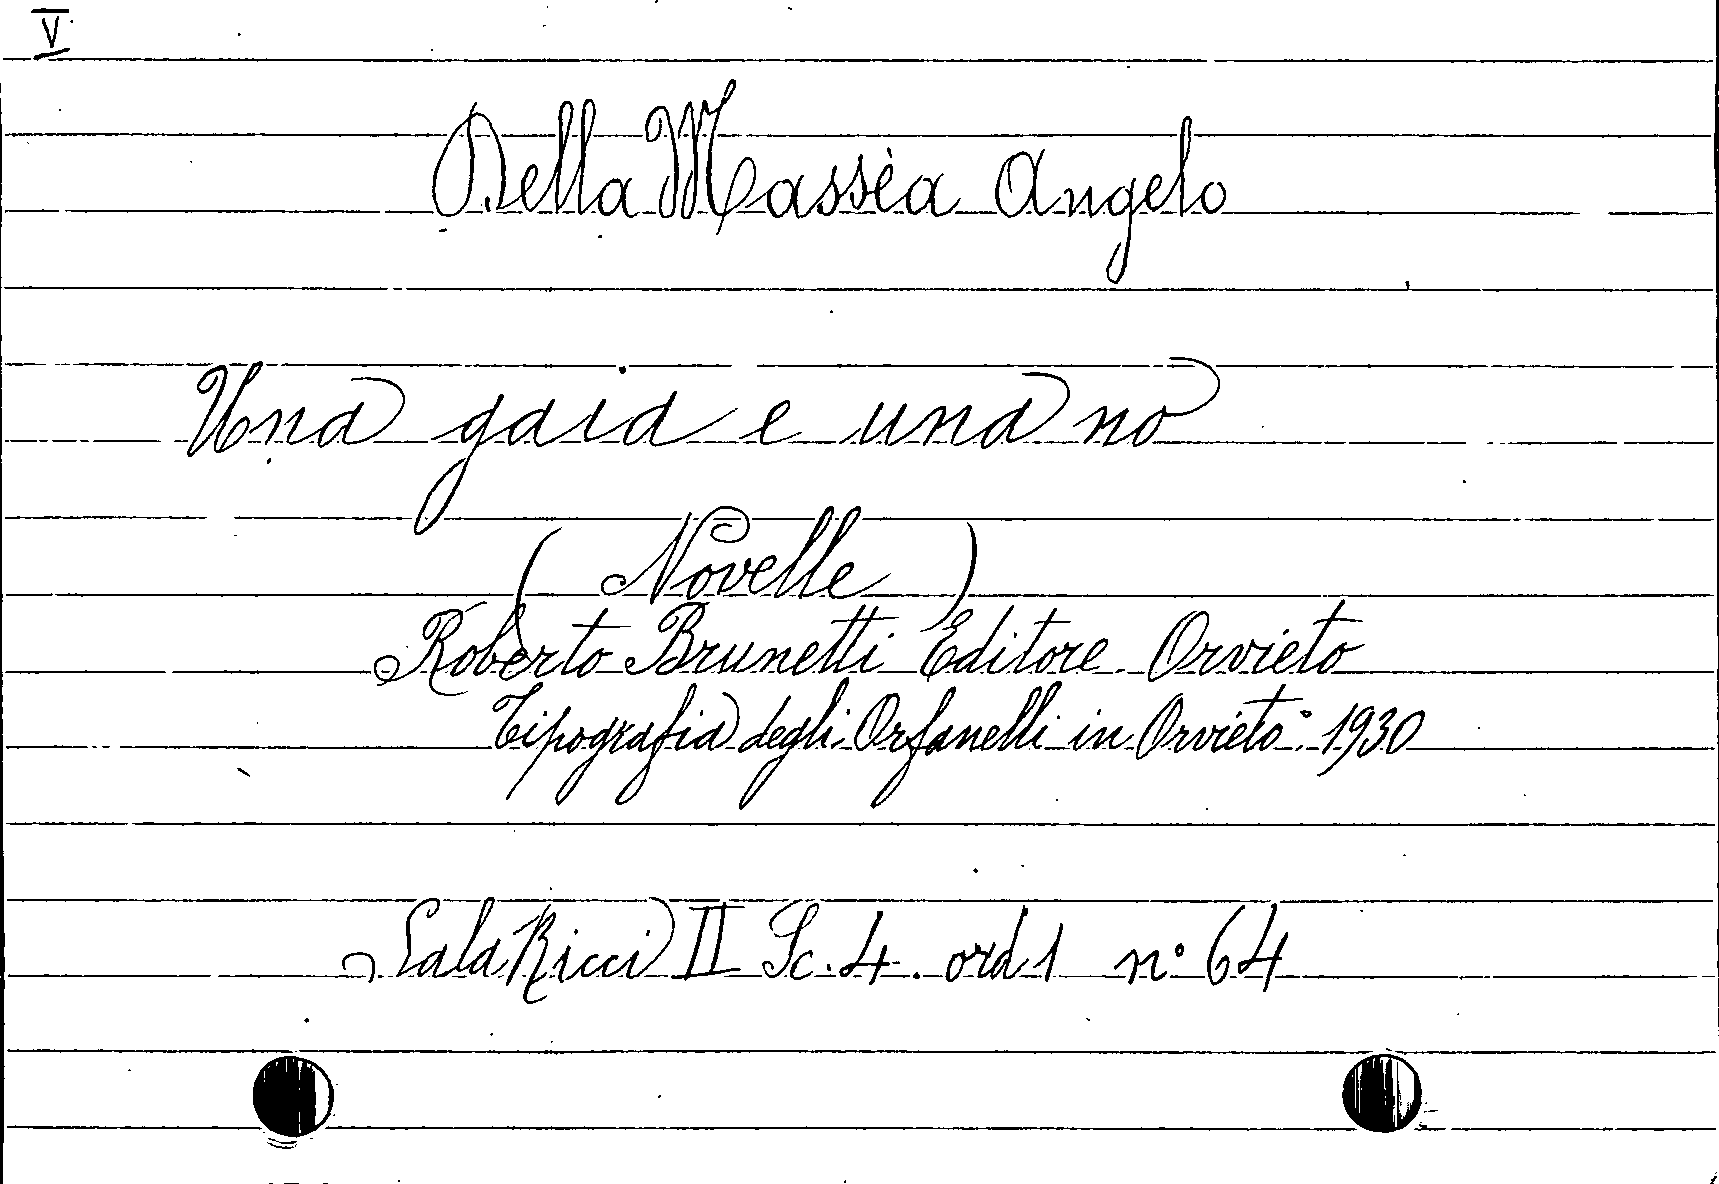 V
Della Massèa Angelo
Una gaia e una no
(Novelle)
Roberto Brunetti Editore. Orvieto
Tipografia degli Orfanelli in Orvieto: 1930
Sala Ricci II Sc. 4. ord 1 n° 64